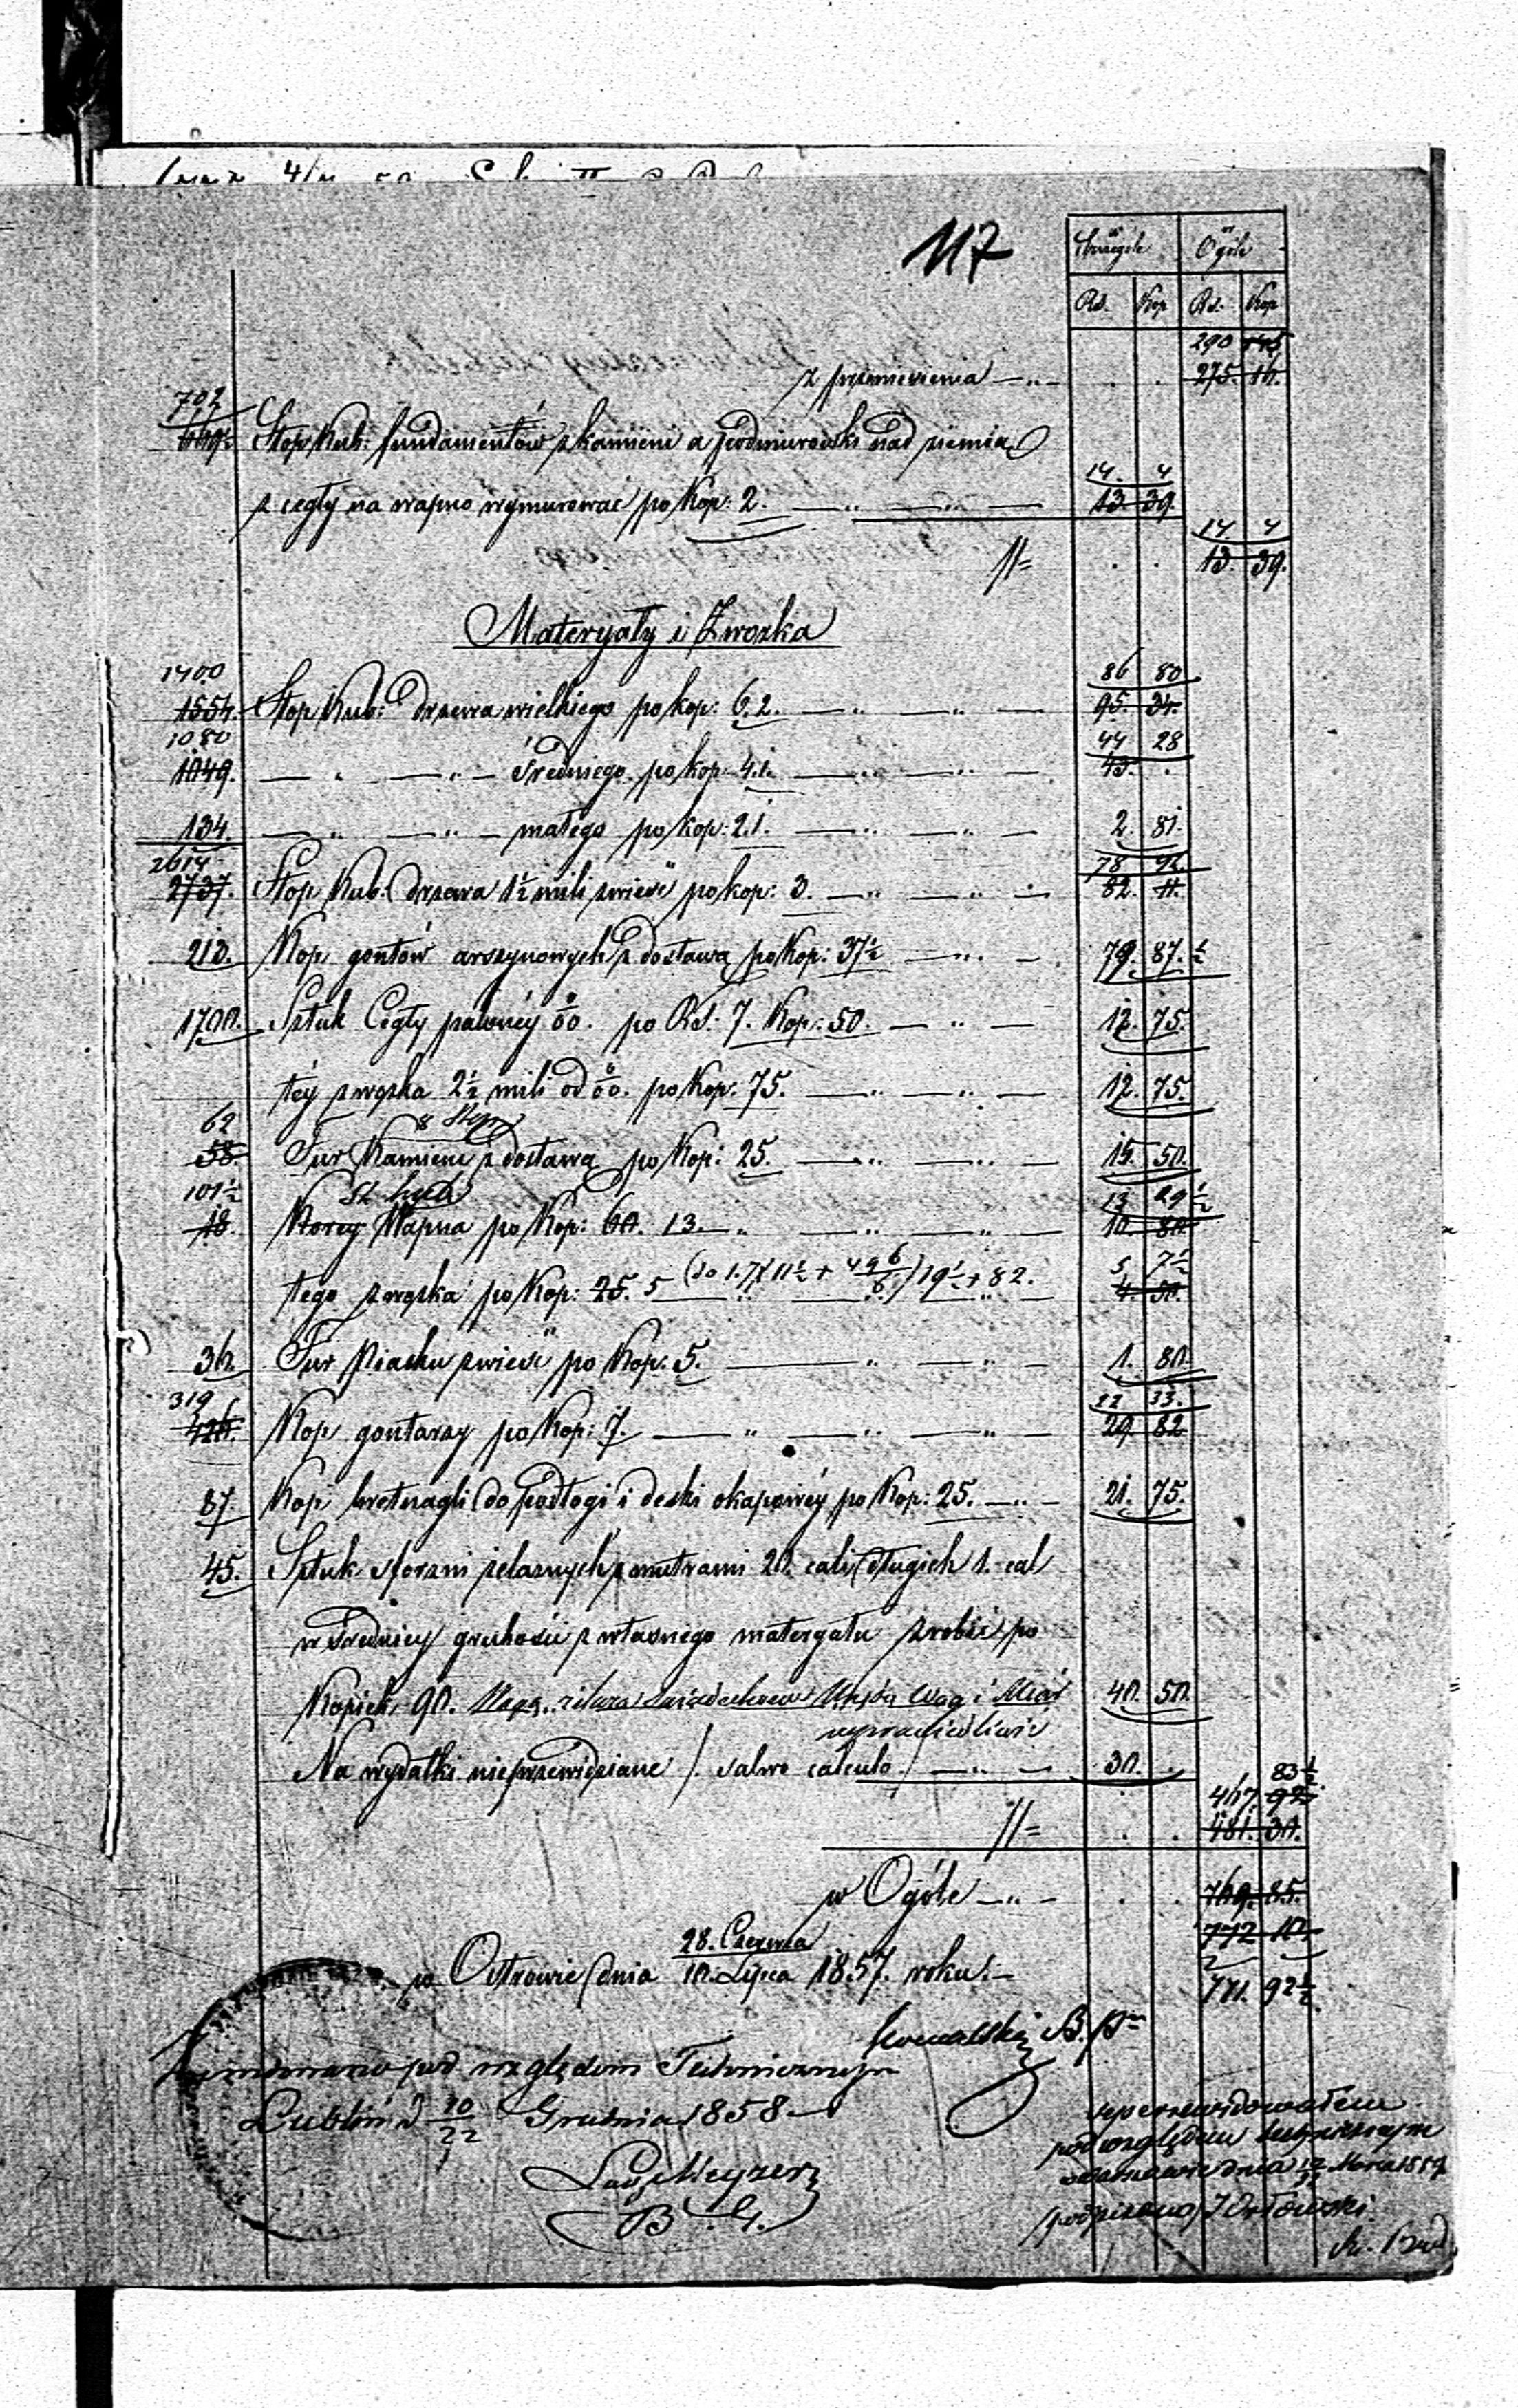 117
Szczególe Ogóle
Rs. Kop Rs. Kop
290
z przeniesienia — " — . . 275. 16.
702
669½ Stop Kub: fundamentów z kamieni a podmurówki nad ziemią
14. 4
z cegły na wapno wymurować po Kop: 2. — " — " — 13. 39.
14 4
//= . . 13. 39.
Materyały i Zwózka
1400 86 80
1554. Stop Kub: drzewa wielkiego po kop: 6.2. — " — " — 95. 34.
1080 44 28
1049. — " — " — średniego po kop: 4.1. — " — " — 43. .
134. — " — " — małego po kop: 2.1. — " — " — 2. 81.
2614 78 42.
2737. Stop Kub: drzewa 1½ mili zwieść po kop: 3. — " — " — 82. 11.
213. Kop gontów arszynowych z dostawą po Kop: 37½ — " — 79. 87.½
1700. Sztuk Cegły palonéy %00. po Rs. 7. Kop: 50. — " — 12. 75.
téy zwózka 2½ mili od %00. po Kop. 75. — " — " — 12. 75.
62 8 Stop
58. Fur Kamieni z dostawą po Kop: 25. — " — " — 15. 50.
101½ 13 29½
18. Korcy Wapna po Kop: 60. 13. — " — " — 10. 80.
5 7½
tego zwózka po Kop: 25. 5 — " — " — 4. 50.
36. Fur Piasku zwieść po Kop: 5. — " — " — 1. 80.
319 22 33.
426. Kop gontarzy po Kop: 7. — " — " — " — 29. 82
87. Kop bretnagli do podłogi i deski okapowéy po Kop: 25. — " — 21. 75.
45. Sztuk sforzni żelaznych z mutrami 20. cali długich 1. cal
w średnicy grubości z własnego materyału zrobić po
Kopiek 90. Wagą żelaza Urzędu Wag i Miar 40. 50.
usprawiedliwić
Na wydatki nieprzewidziane /. salvo calculo ./ — " — 30. .
83½
467. 92
//= . . 481. 30.
w Ogóle — " — . . 769. 85.
772 10
28. Czerwca
w Ostrowie dnia 10. Lipca 1857. roku. — 771. 92½
Kowalski B. P.
pod względem Technicznym
Lublin d 10/22 Grudnia 1858
B. G.
superrewidowałem
pod względem technicznym
dnia Marca 1859
(podpisano)